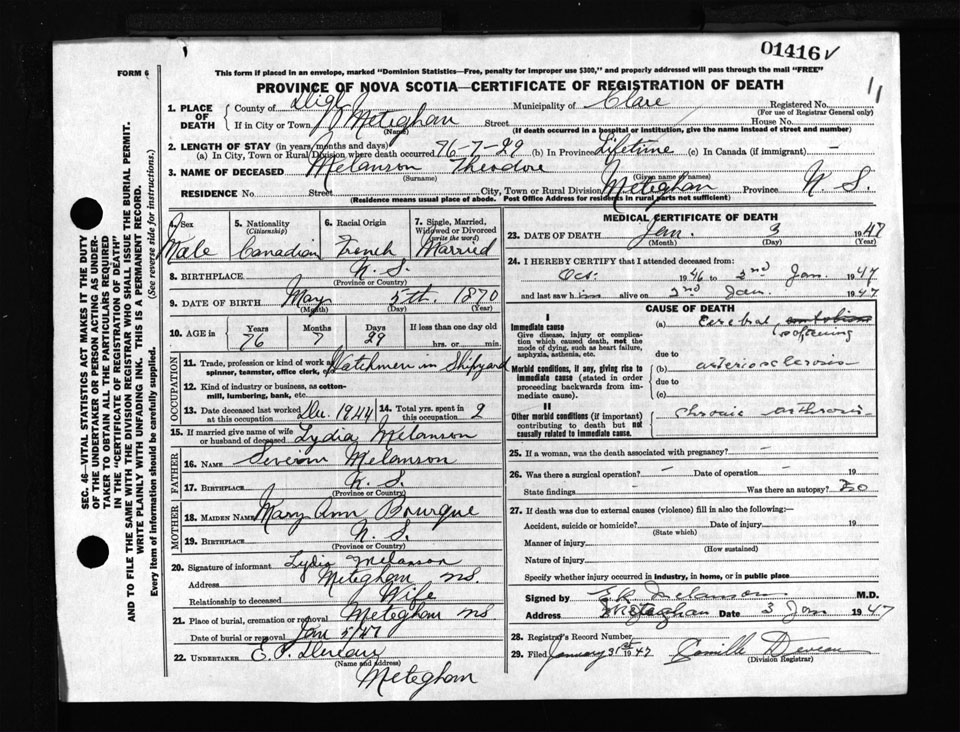 01416 ✓
FORM 6
This form if placed in an envelope, marked "Dominion Statistics—Free, penalty for improper use $300," and properly addressed will pass through the mail "FREE"
PROVINCE OF NOVA SCOTIA—CERTIFICATE OF REGISTRATION OF DEATH
SEC. 46—VITAL STATISTICS ACT MAKES IT THE DUTY
OF THE UNDERTAKER OR PERSON ACTING AS UNDER-
TAKER TO OBTAIN ALL THE PARTICULARS REQUIRED
IN THE "CERTIFICATE OF REGISTRATION OF DEATH"
AND TO FILE THE SAME WITH THE DIVISION REGISTRAR WHO SHALL ISSUE THE BURIAL PERMIT.
WRITE PLAINLY WITH UNFADING INK. THIS IS A PERMANENT RECORD.
Every item of information should be carefully supplied. (See reverse side for instructions.)
1. PLACE OF DEATH County of Digby Municipality of Clare Registered No. 11
(For use of Registrar General only)
If in City or Town Meteghan Street House No.
(Name) (If death occurred in a hospital or institution, give the name instead of street and number)
2. LENGTH OF STAY (in years, months and days)
(a) In City, Town or Rural Division where death occurred 76-7-29 (b) In Province Lifetime (c) In Canada (if immigrant) —
3. NAME OF DECEASED Melanson Theodore
(Surname) (Given name or names)
RESIDENCE No. Street City, Town or Rural Division Meteghan Province N S.
(Residence means usual place of abode. Post Office Address for residents in rural parts not sufficient)
4. Sex Male
5. Nationality (Citizenship) Canadian
6. Racial Origin French
7. Single, Married, Widowed or Divorced (write the word) Married
8. BIRTHPLACE N. S.
(Province or Country)
9. DATE OF BIRTH May 5th. 1870
(Month) (Day) (Year)
10. AGE in Years 76 Months 7 Days 29 If less than one day old hrs. or min.
OCCUPATION
11. Trade, profession or kind of work as spinner, teamster, office clerk, etc. Watchmen in Shipyard
12. Kind of industry or business, as cotton-mill, lumbering, bank, etc.
13. Date deceased last worked at this occupation Dec. 1944 14. Total yrs. spent in this occupation 2
15. If married give name of wife or husband of deceased Lydia Melanson
FATHER
16. NAME Melanson
17. BIRTHPLACE N. S.
(Province or Country)
MOTHER
18. MAIDEN NAME Mary Ann Bourque
19. BIRTHPLACE N. S.
(Province or Country)
20. Signature of informant Lydia Melanson
Address Meteghan N.S.
Relationship to deceased Wife
21. Place of burial, cremation or removal Meteghan N S
Date of burial or removal Jan 5/47
22. UNDERTAKER E. P.
(Name and address)
Meteghan
MEDICAL CERTIFICATE OF DEATH
23. DATE OF DEATH Jan. 3 1947
(Month) (Day) (Year)
24. I HEREBY CERTIFY that I attended deceased from:
Oct. 1946 to 3nd Jan. 1947
and last saw him alive on 2nd Jan. 1947
CAUSE OF DEATH
I
Immediate cause
Give disease, injury or complication which caused death, not the mode of dying, such as heart failure, asphyxia, asthenia, etc.
(a) cerebral softening
due to
Morbid conditions, if any, giving rise to immediate cause (stated in order proceeding backwards from immediate cause).
(b) arteriosclerosis
due to
(c)
II
Other morbid conditions (if important) contributing to death but not causally related to immediate cause.
chronic
25. If a woman, was the death associated with pregnancy? —
26. Was there a surgical operation? — Date of operation — 19
State findings — Was there an autopsy? no
27. If death was due to external causes (violence) fill in also the following:—
Accident, suicide or homicide? Date of injury 19
(State which)
Manner of injury
(How sustained)
Nature of injury
Specify whether injury occurred in industry, in home, or in public place
Signed by Melanson M.D.
Address Meteghan Date 3 Jan 1947
28. Registrar's Record Number
29. Filed January 31st 1947 Camille
(Division Registrar)